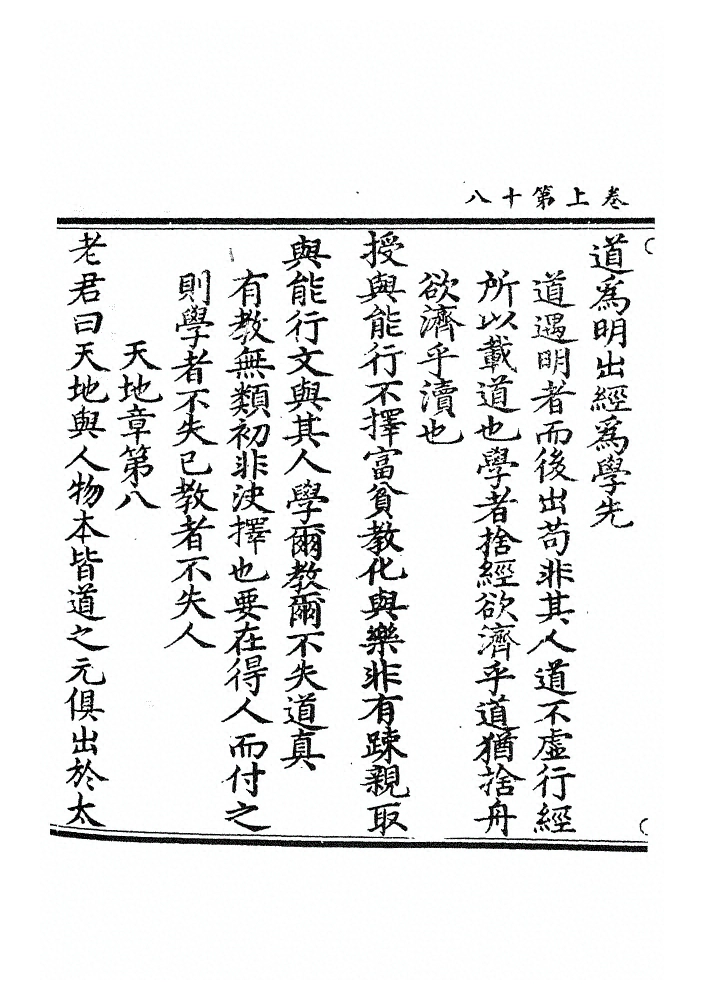 卷上第十八
道爲明出經爲學先
道遇明者而後出苟非其人道不虛行經
所以載道也學者捨經欲濟乎道猶捨舟
欲濟乎瀆也
授與能行不擇富貧教化與樂非有踈親取
與能行文與其人學爾教爾不失道真
有教無類初非决擇也要在得人而付之
則學者不失已教者不失人
天地章第八
老君曰天地與人物本皆道之元俱出於太